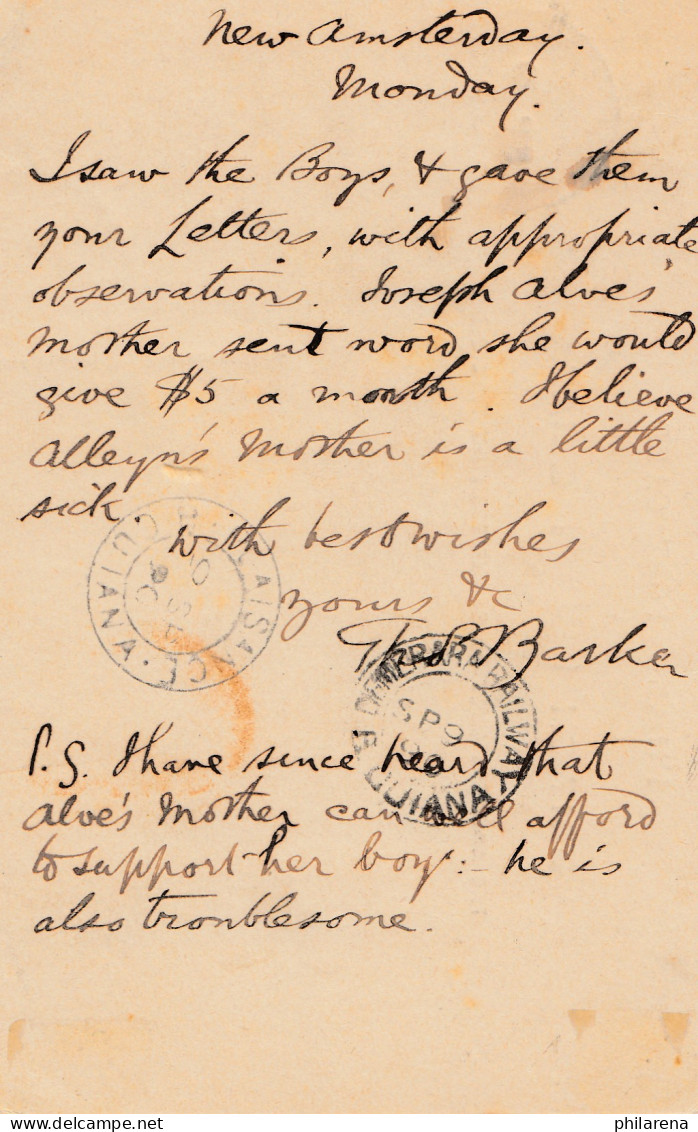 New Amsterday.
Monday.
I saw the Boys, & gave them
your Letters, with appropriate
observations. Joseph Alves'
mother sent word she would
give $5 a month. I believe
Alleyn's Mother is a little
sick.
with best wishes
yours &c
Barker
DEMERARA RAILWAY
SP 9
GUIANA
P.S. I have since heard that
Alve's Mother can well afford
to support her boy:- he is
also troublesome.
delcampe.net
philarena